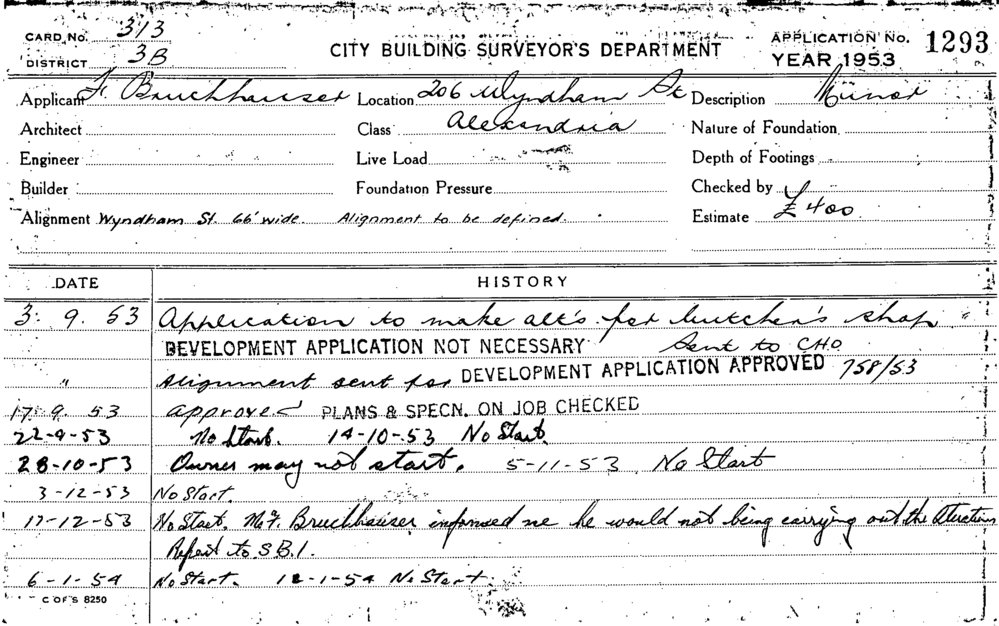 CARD No. 313
DISTRICT 3B
CITY BUILDING SURVEYOR'S DEPARTMENT
APPLICATION No. 1293
YEAR 1953
Applicant F. Bruchhauser Location 206 Wyndham St Description Minor
Architect Class Alexandria Nature of Foundation
Engineer Live Load Depth of Footings
Builder Foundation Pressure Checked by
Alignment Wyndham St. 66' wide. Alignment to be defined. Estimate £400
DATE HISTORY
3. 9. 53 Application to make alt's for butcher's shop
DEVELOPMENT APPLICATION NOT NECESSARY Sent to CHO
" Alignment sent for DEVELOPMENT APPLICATION APPROVED 758/53
17. 9. 53 approved PLANS & SPECN. ON JOB CHECKED
22-9-53 No Start. 14-10-53 No Start
28-10-53 Owner may not start. 5-11-53 No Start
3-12-53 No Start.
17-12-53 No Start. Mr F. Bruchhauser informed me he would not being carrying out the
Report to S.B.I.
6-1-54 No Start. 12-1-54 No Start.
C OF S 8250